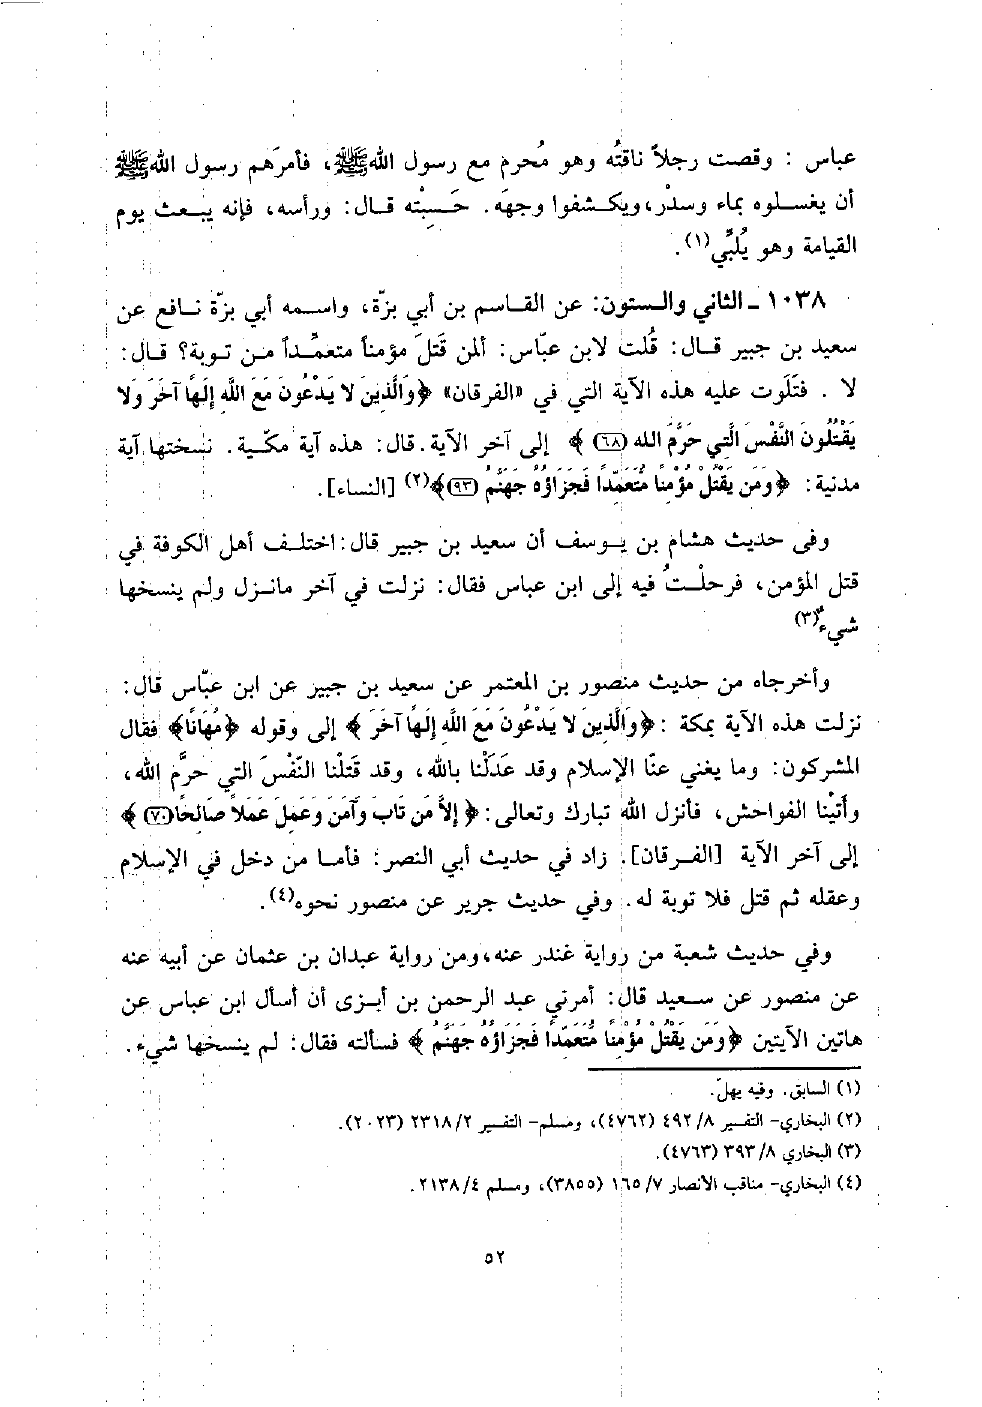 عباس : وقصت رجلاً ناقتُه وهو مُحرم مع رسول اللهﷺ، فأمرَهم رسول اللهﷺ
أن يغسلوه بماء وسدْر، ويكشفوا وجهَه. حَسِبْته قال: ورأسه، فإنه يبعث يوم
القيامة وهو يُلبِّي(١).
١٠٣٨ ـ الثاني والستون: عن القاسم بن أبي بزّة، واسمه أبي بزّة نافع عن
سعيد بن جبير قال: قُلت لابن عبّاس: ألمن قَتلَ مؤمناً متعمِّداً من توبة؟ قال:
لا . فتَلَوت عليه هذه الآية التي في «الفرقان» ﴿وَالَّذِينَ لا يَدْعُونَ مَعَ اللَّهِ إِلَهًا آخَرَ وَلا
يَقْتُلُونَ النَّفْسَ الَّتِي حَرَّمَ الله (٦٨) ﴾ إلى آخر الآية. قال: هذه آية مكّية. نسختها آية
مدنية: ﴿وَمَن يَقْتُلْ مُؤْمِنًا مُّتَعَمِّدًا فَجَزَاؤُهُ جَهَنَّمُ (٩٣)﴾(٢) [النساء].
وفى حديث هشام بن يوسف أن سعيد بن جبير قال: اختلف أهل الكوفة في
قتل المؤمن، فرحلْتُ فيه إلى ابن عباس فقال: نزلت في آخر مانزل ولم ينسخها
شيءٌ(٣)
وأخرجاه من حديث منصور بن المعتمر عن سعيد بن جبير عن ابن عبّاس قال:
نزلت هذه الآية بمكة : ﴿وَالَّذِينَ لا يَدْعُونَ مَعَ اللَّهِ إِلَهًا آخَرَ ﴾ إلى وقوله ﴿مُهَانًا﴾ فقال
المشركون: وما يغني عنّا الإسلام وقد عدَلْنا بالله، وقد قَتلْنا النّفْسَ التي حرَّم الله،
وأتيْنا الفواحش، فأنزل الله تبارك وتعالى: ﴿ إِلاَّ مَن تَابَ وَآمَنَ وَعَمِلَ عَمَلاً صَالِحًا(٧٠) ﴾
إلى آخر الآية [الفرقان]. زاد في حديث أبي النصر: فأما من دخل في الإسلام
وعقله ثم قتل فلا توبة له. وفي حديث جرير عن منصور نحوه(٤).
وفي حديث شعبة من رواية غندر عنه، ومن رواية عبدان بن عثمان عن أبيه عنه
عن منصور عن سعيد قال: أمرني عبد الرحمن بن أبزى أن أسأل ابن عباس عن
هاتين الآيتين ﴿وَمَن يَقْتُلْ مُؤْمِنًا مُّتَعَمِّدًا فَجَزَاؤُهُ جَهَنَّمُ ﴾ فسألته فقال: لم ينسخها شيء.
(١) السابق. وفيه يهلّ.
(٢) البخاري- التفسير ٤٩٢/٨ (٤٧٦٢)، ومسلم- التفسير ٢٣١٨/٢ (٢٠٢٣).
(٣) البخاري ٣٩٣/٨ (٤٧٦٣).
(٤) البخاري- مناقب الأنصار ١٦٥/٧ (٣٨٥٥)، ومسلم ٢١٣٨/٤.
٥٢